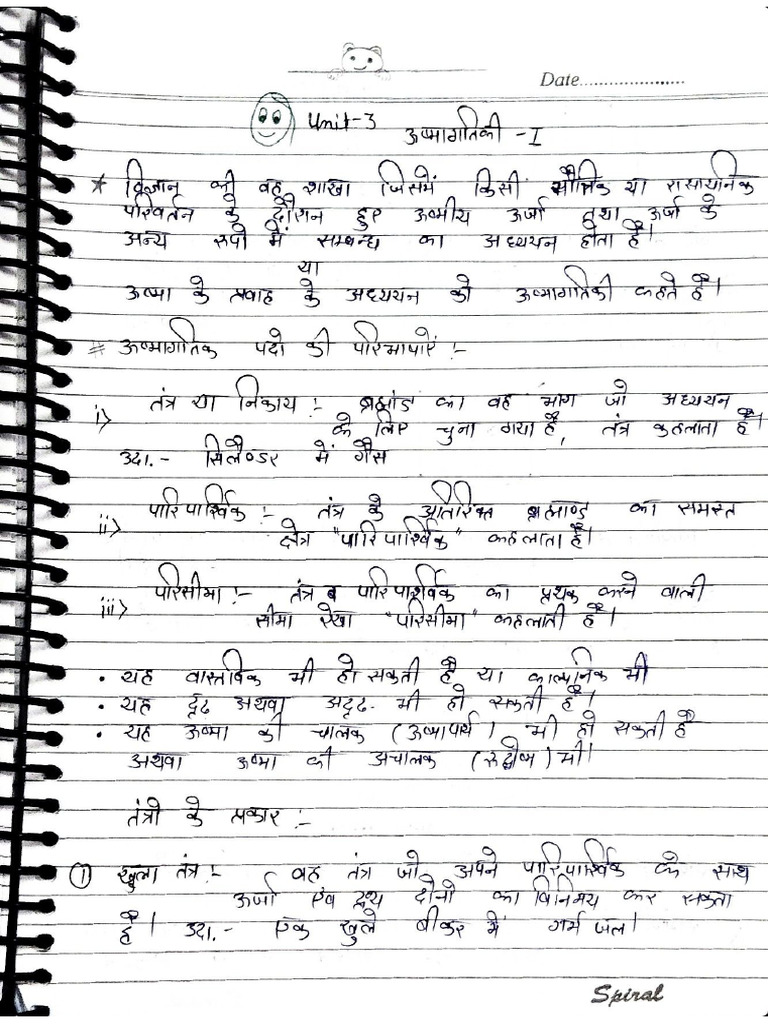 Date.....................
Unit-3 ऊष्मागतिकी - I
* विज्ञान की वह शाखा जिसमें किसी भौतिक या रासायनिक
परिवर्तन के दौरान हुए ऊष्मीय ऊर्जा तथा ऊर्जा के
अन्य रूपो में सम्बन्ध का अध्ययन होता है।
या
ऊष्मा के प्रवाह के अध्ययन को ऊष्मागतिकी कहते है।
# ऊष्मागतिक पदो की परिभाषाऐं :-
i> तंत्र या निकाय :- ब्रह्मांड का वह भाग जो अध्ययन
के लिए चुना गया है, तंत्र कहलाता है।
उदा.- सिलैण्डर में गैस
ii> पारिपार्श्विक :- तंत्र के अतिरिक्त ब्रह्माण्ड का समस्त
क्षेत्र "पारिपार्श्विक" कहलाता है।
iii> परिसीमा :- तंत्र व पारिपार्श्विक का प्रथक करने वाली
सीमा रेखा "परिसीमा" कहलाती है।
• यह वास्तविक भी हो सकती है या काल्पनिक भी
• यह दृढ अथवा अदृढ. भी हो सकती है।
• यह ऊष्मा की चालक (ऊष्मापर्य) भी हो सकती है
अथवा ऊष्मा की अचालक (रूद्धोष्म) भी।
तंत्रो के प्रकार :-
① खुला तंत्र :- वह तंत्र जो अपने पारिपार्श्विक के साथ
ऊर्जा एंव द्रव्य दोनो का विनिमय कर सकता
है। उदा.- एक खुले बीकर में गर्म जल।
Spiral